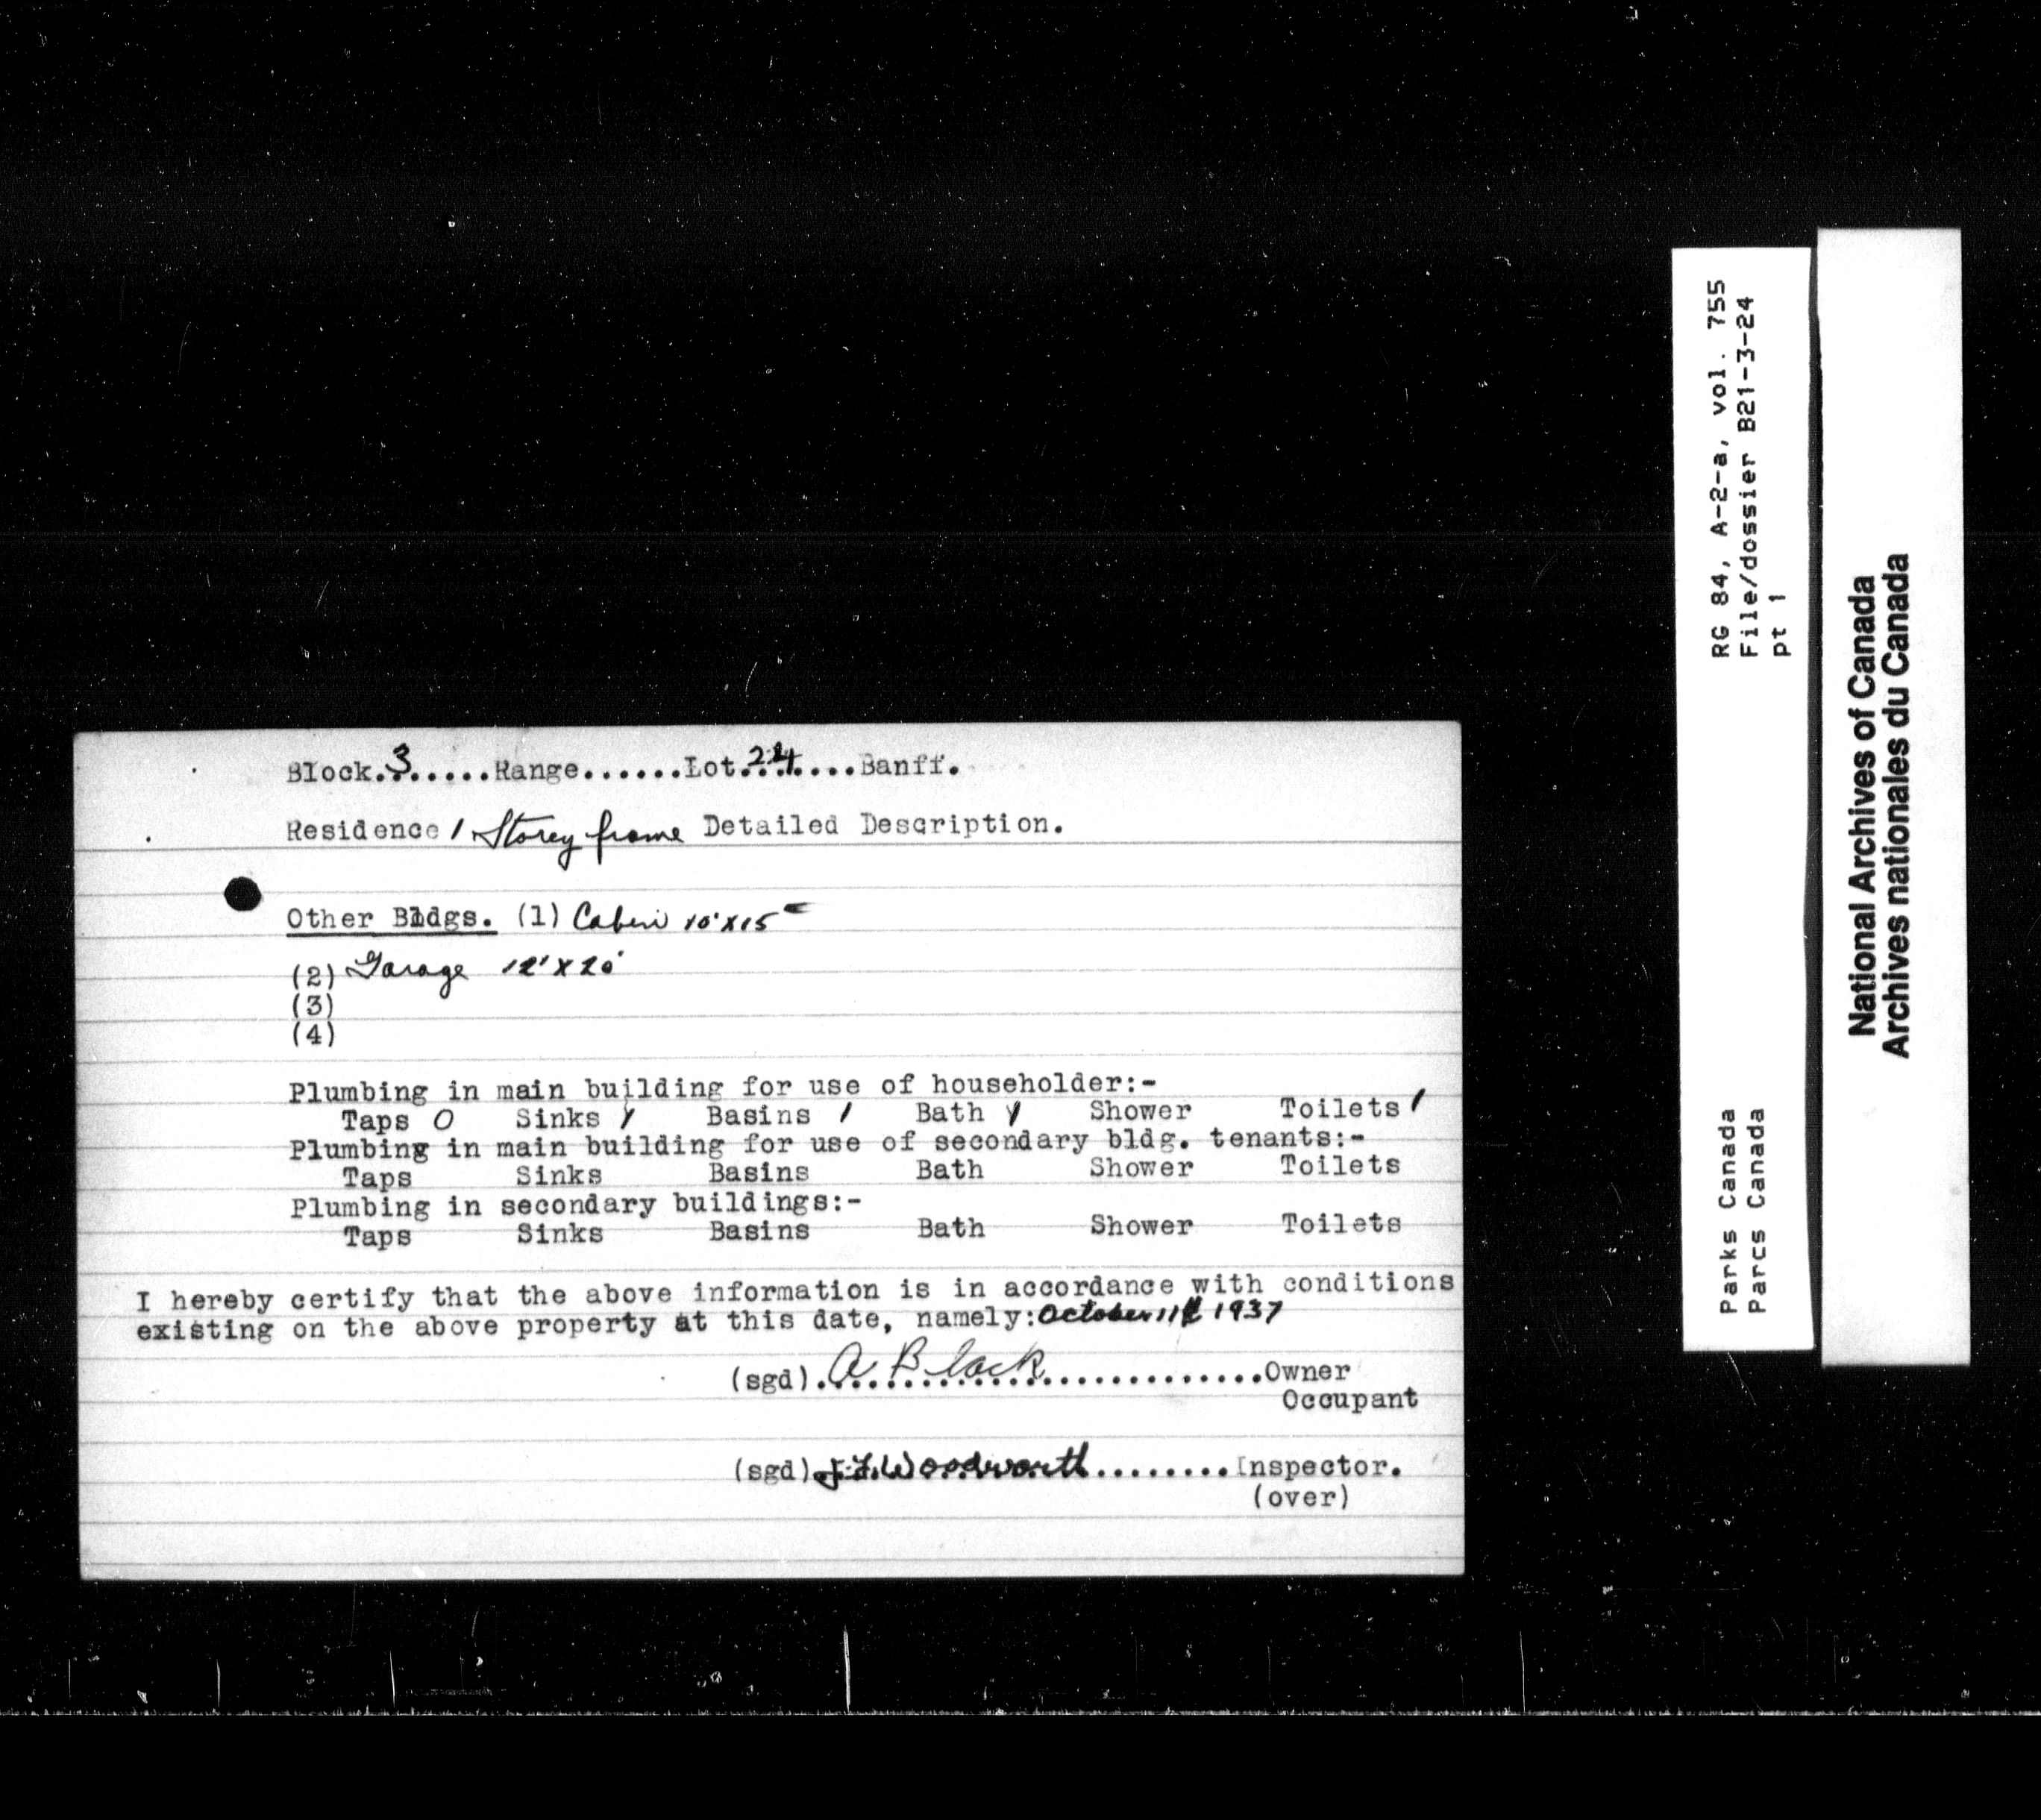 Block.3......Range.......Lot.24.....Banff.
Residence 1 Storey frame Detailed Description.
Other Bldgs. (1) Cabin 10'x15'
(2) Garage 12'x20'
(3)
(4)
Plumbing in main building for use of householder:-
Taps 0 Sinks 1 Basins 1 Bath 1 Shower Toilets 1
Plumbing in main building for use of secondary bldg. tenants:-
Taps Sinks Basins Bath Shower Toilets
Plumbing in secondary buildings:-
Taps Sinks Basins Bath Shower Toilets
I hereby certify that the above information is in accordance with conditions
existing on the above property at this date, namely: October 11th 1937
(sgd). A Black..............Owner
Occupant
(sgd) J.F. Woodworth.........Inspector.
(over)
RG 84, A-2-a, vol. 755
File/dossier B21-3-24
pt 1
Parks Canada
Parcs Canada
National Archives of Canada
Archives nationales du Canada